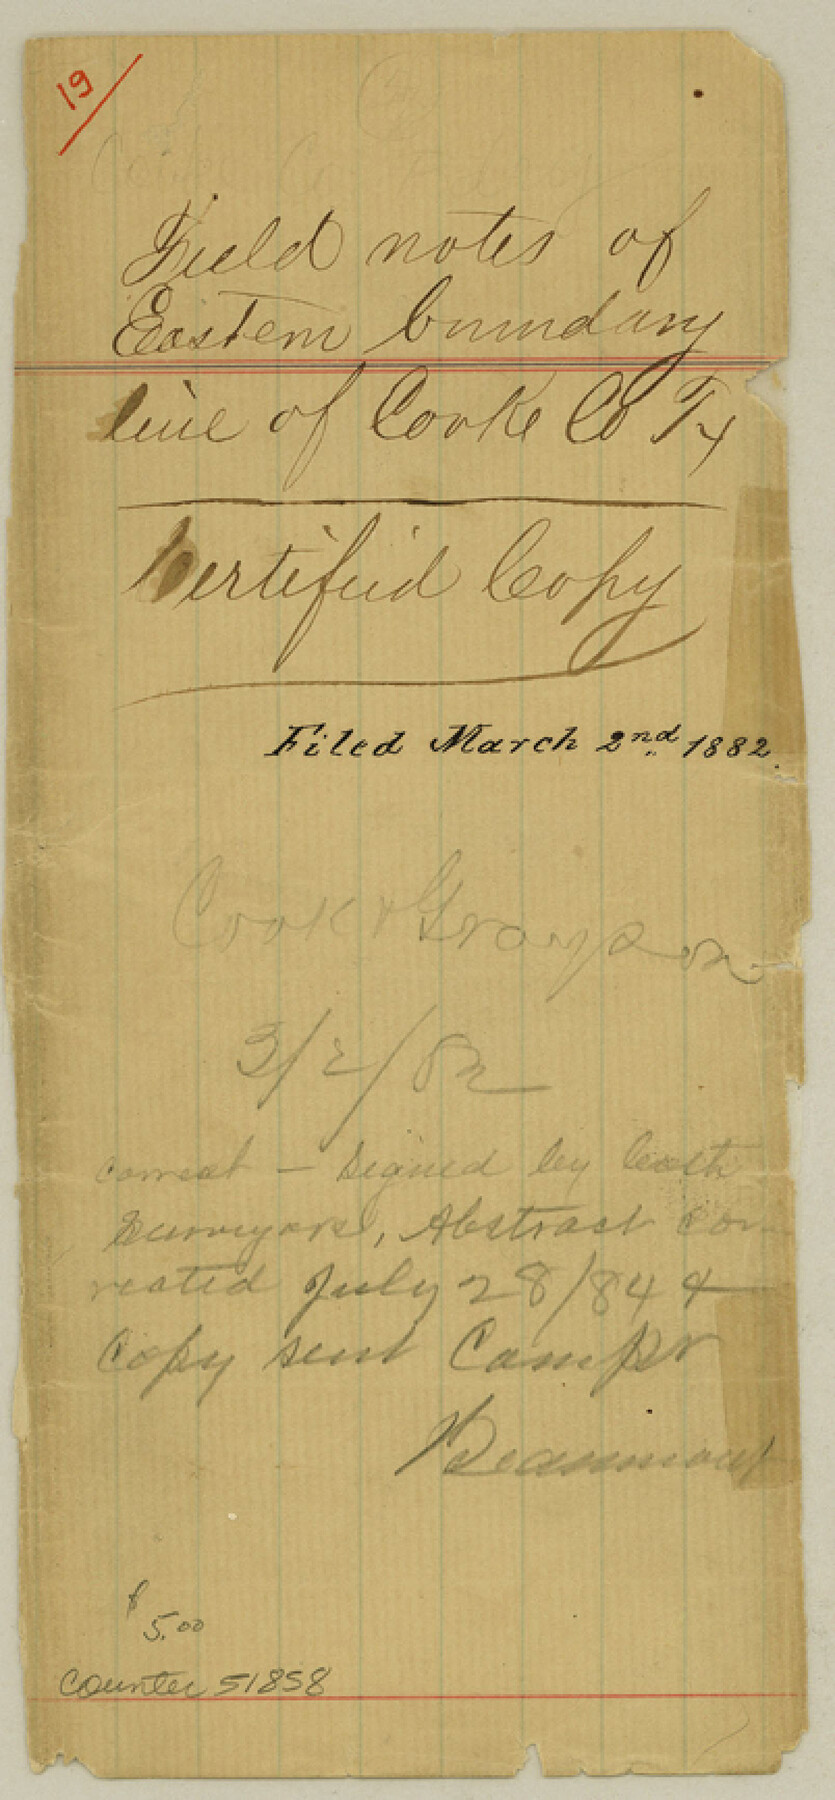 19
Cooke Co
Field notes of
Eastern boundary
line of Cooke Co Tx
Certifid Copy
Filed March 2nd 1882.
Cook & Grayson
3/2/82
correct - signed by both
surveyors, Abstract cor-
rected July 28/84 &
Copy sent Comps
$5.00
counter 51858